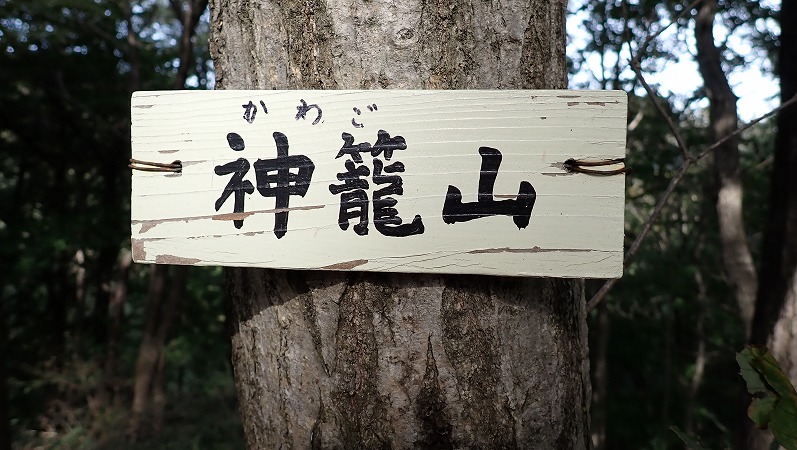 かわご
神籠山